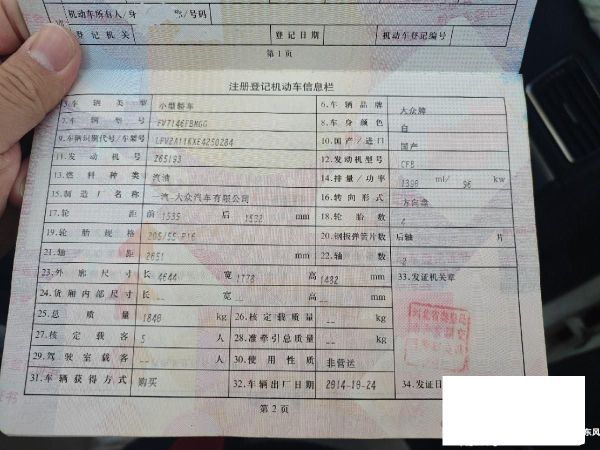 机动车所有人/身 /号码
登记机关 登记日期 机动车登记编号
第1页
注册登记机动车信息栏
5.车辆类型 小型轿车 6.车辆品牌 大众牌
7.车辆型号 FV7146FBMGG 8.车身颜色 白
9.车辆识别代号/车架号 LFV2A11KXE4250284 10.国产/进口 国产
11.发动机号 Z65193 12.发动机型号 CFB
13.燃料种类 汽油 14.排量/功率 1390 ml/ 96 kw
15.制造厂名称 一汽-大众汽车有限公司 16.转向形式 方向盘
17.轮距 前 1535 后 1532 mm 18.轮胎数 4
19.轮胎规格 205/55 R16 20.钢板弹簧片数 后轴 片
21.轴距 2651 mm 22.轴数 2
23.外廓尺寸 长 4644 宽 1778 高 1482 mm 33.发证机关章
24.货厢内部尺寸 长 -- 宽 -- 高 -- mm
25.总质量 1840 kg 26.核定载质量 -- kg
27.核定载客 5 人 28.准牵引总质量 -- kg
29.驾驶室载客 -- 人 30.使用性质 非营运
31.车辆获得方式 购买 32.车辆出厂日期 2014-10-24 34.发证日
第2页
东风